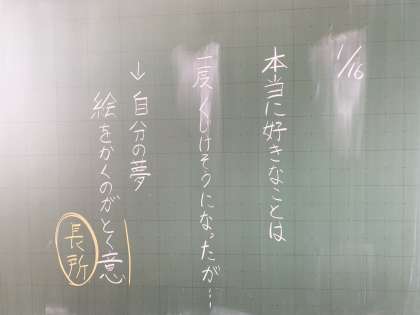 1/16
本当に好きなことは
一度くじけそうになったが…
↓自分の夢
絵をかくのがとく意
長所